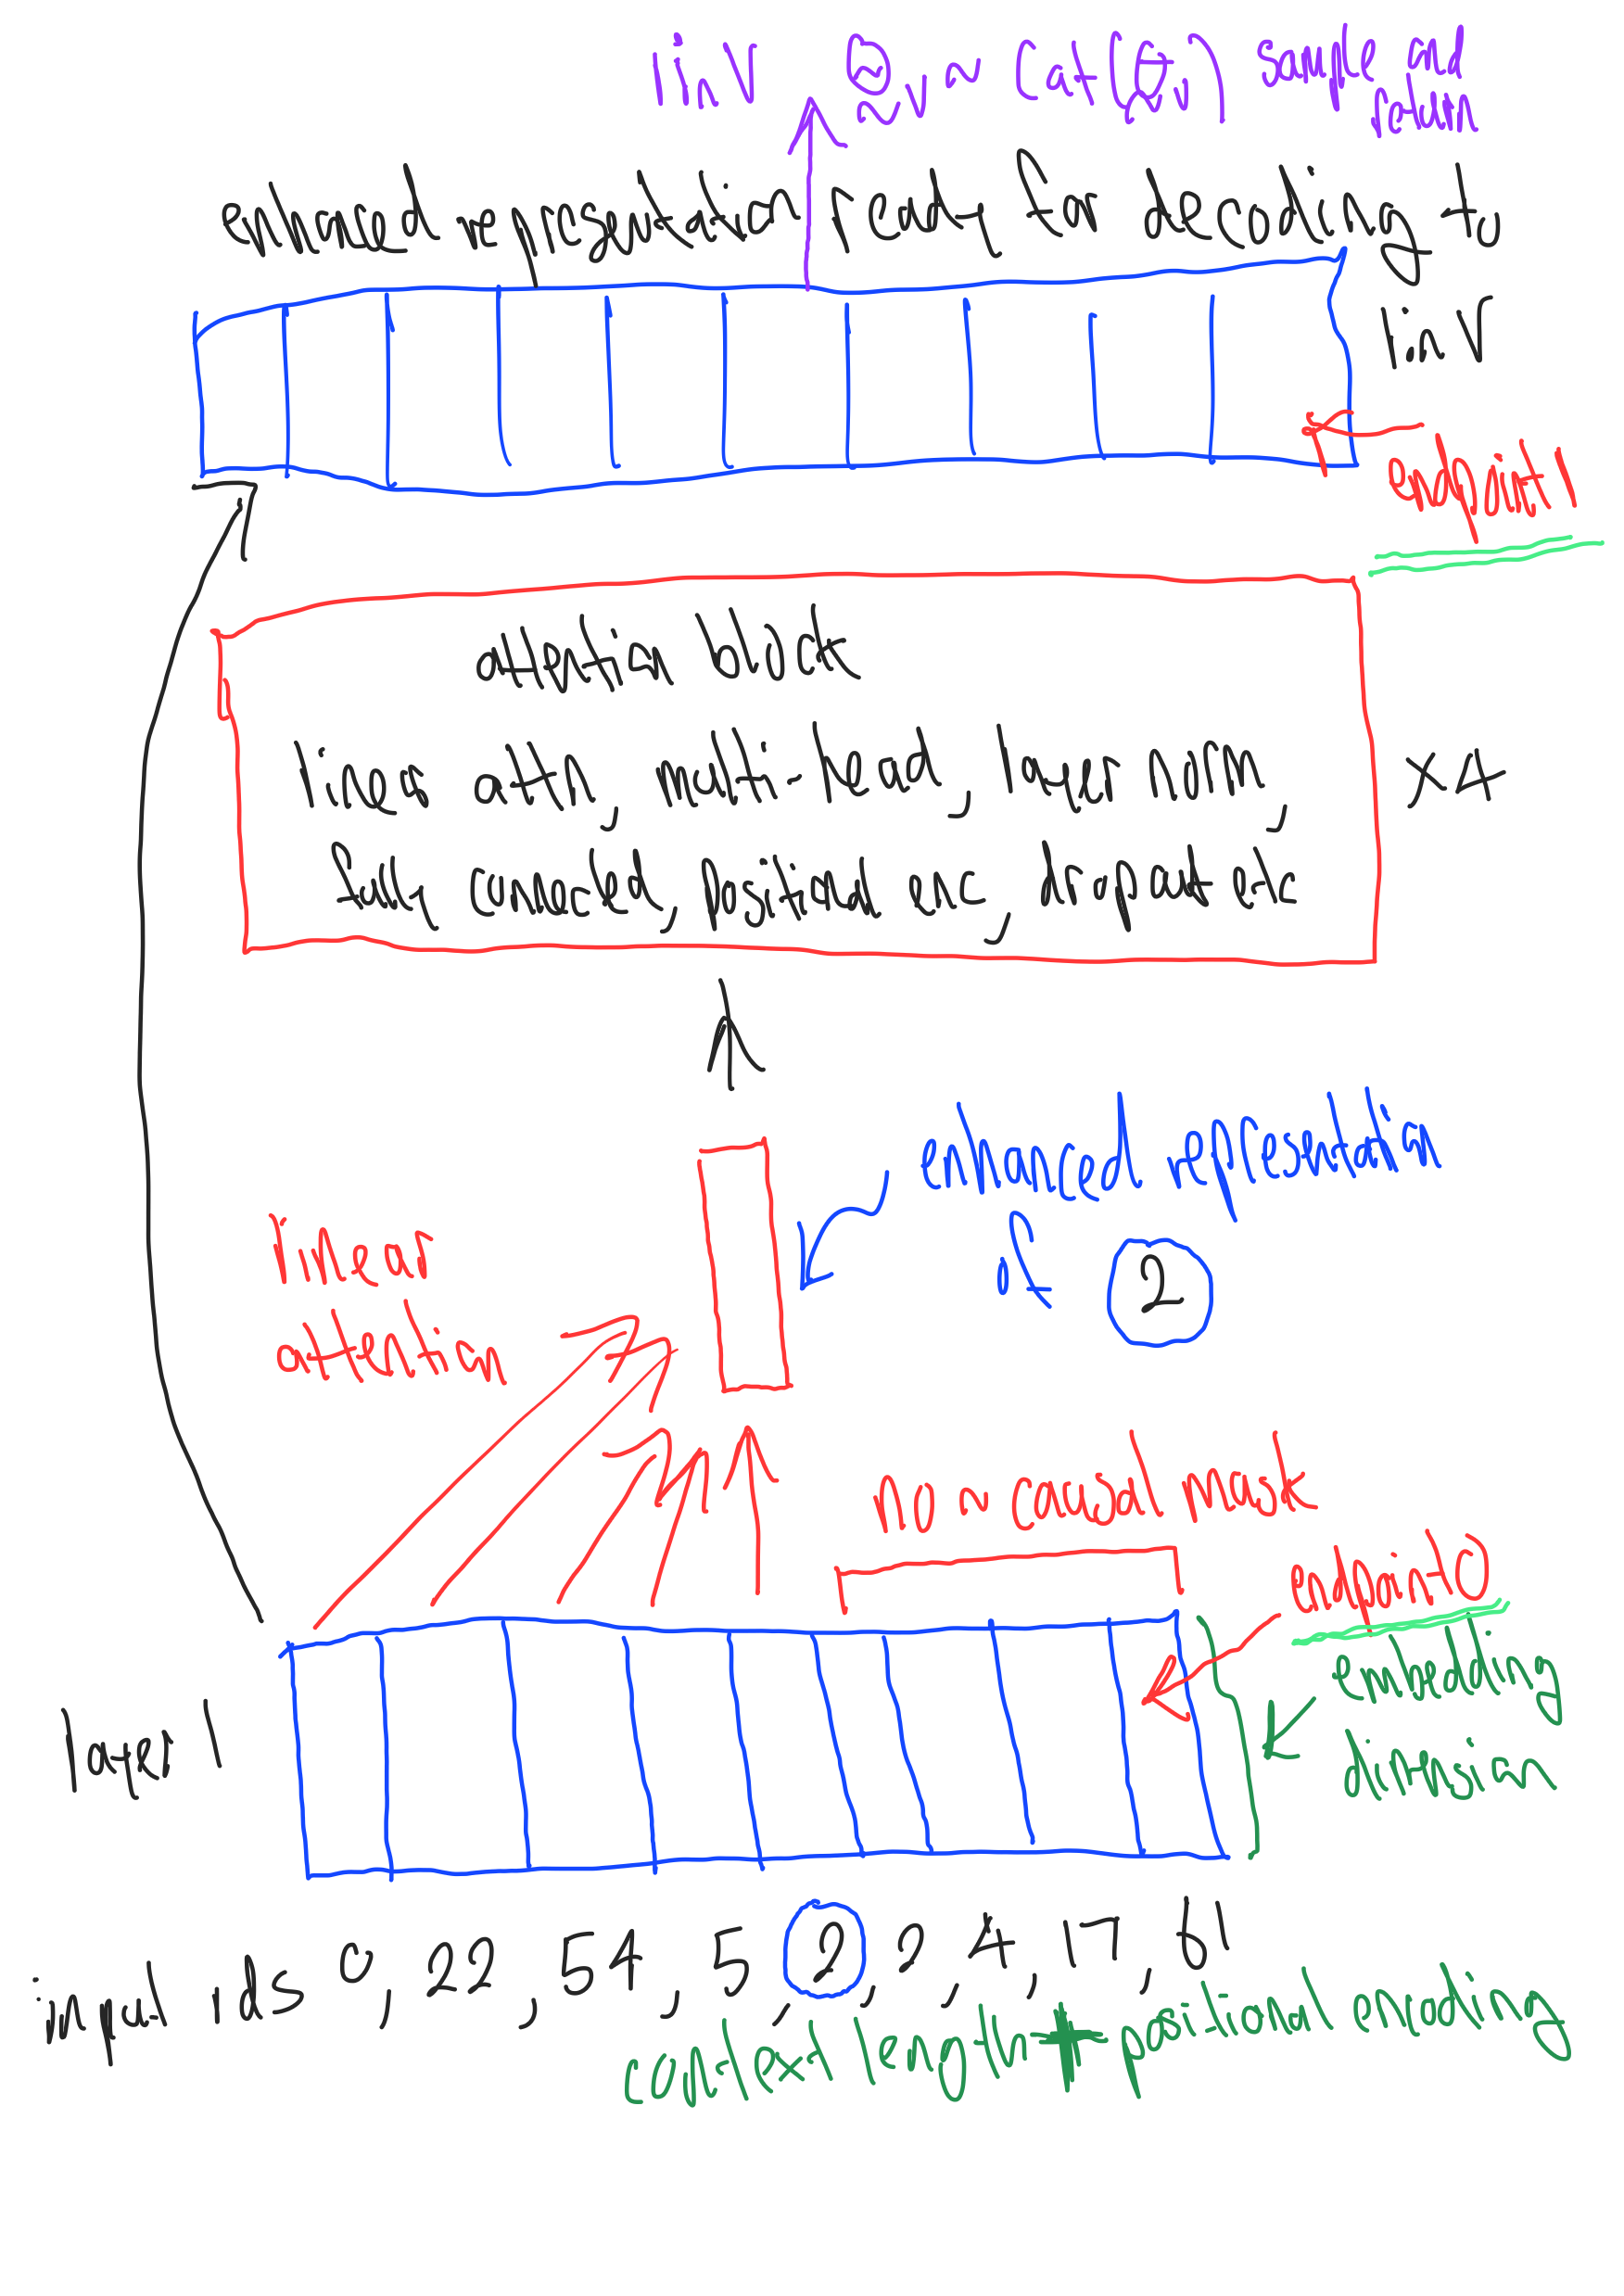 sample and
return
enhanced representation ready for decoding to
1 in V
endpoint 1
attention block
linear attn, multi-head, layer norm,
fully connected, positional enc, dropout etc
x4
enhanced representation
of 2
linear
attention
no - causal mask
endpoint 0
embedding
dimension
layer 1
input ids 0, 22, 54, 5, 2, 2, 4, 17, 61
context length + positional encoding